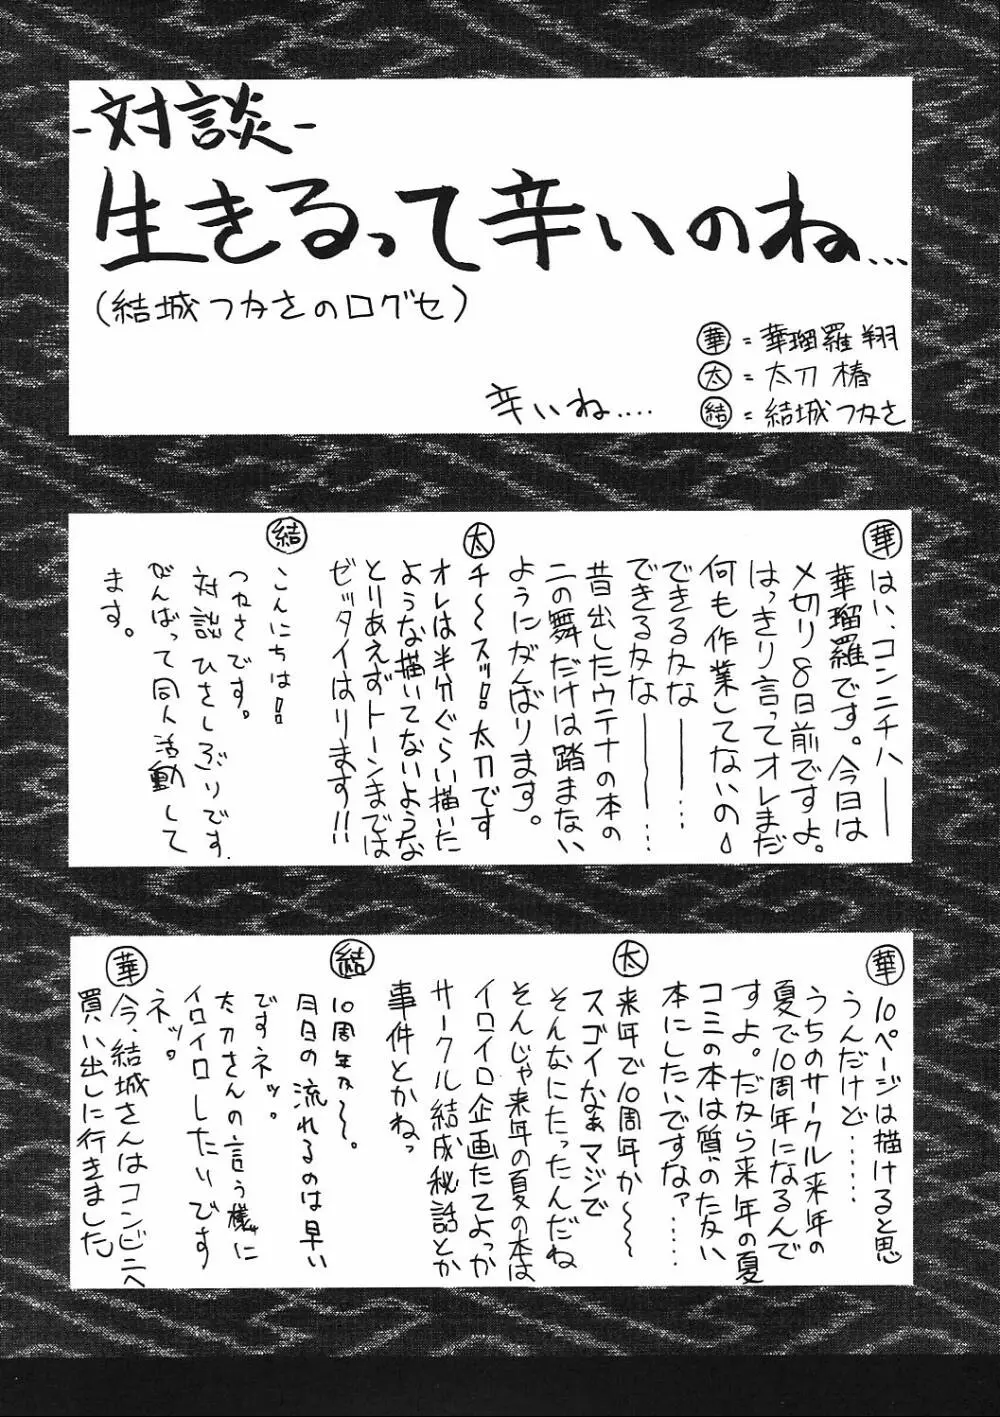 -対談-
生きるって辛いのね...
(結城つカさのログセ)
辛いね....
華 = 華瑠羅翔
太 = 太刀 椿
結 = 結城つカさ
華
はい、コンニチハ――
華瑠羅です。今日は
〆切り8日前ですよ。
はっきり言ってオレまだ
何も作業してないの
できるかな――...
できるかな――――...
昔出したウテナの本の
二の舞だけは踏まない
ようにがんばります。
太
チ〜〜スッ!! 太刀です
オレは半分ぐらい描いた
ような描いてないような
とりあえずトーンまでは
ゼッタイはります!!
結
こんにちは!!
つカさです。
対談ひさしぶりです。
がんばって同人活動して
ます。
華
10ページは描けると思
うんだけど......
うちのサークル来年の
夏で10周年になるんで
すよ。だから来年の夏
コミの本は質のたかい
本にしたいですなァ......
太
来年で10周年か〜〜〜
スゴイなぁマジで
そんなにたったんだね
そんじゃ来年の夏の本は
イロイロ企画たてよっか
サークル結成秘話とか
事件とかねっ
結
10周年か〜〜。
月日の流れるのは早い
ですネッ。
太刀さんの言う様に
イロイロしたいです
ネッ。
華
今、結城さんはコンビニへ
買い出しに行きました